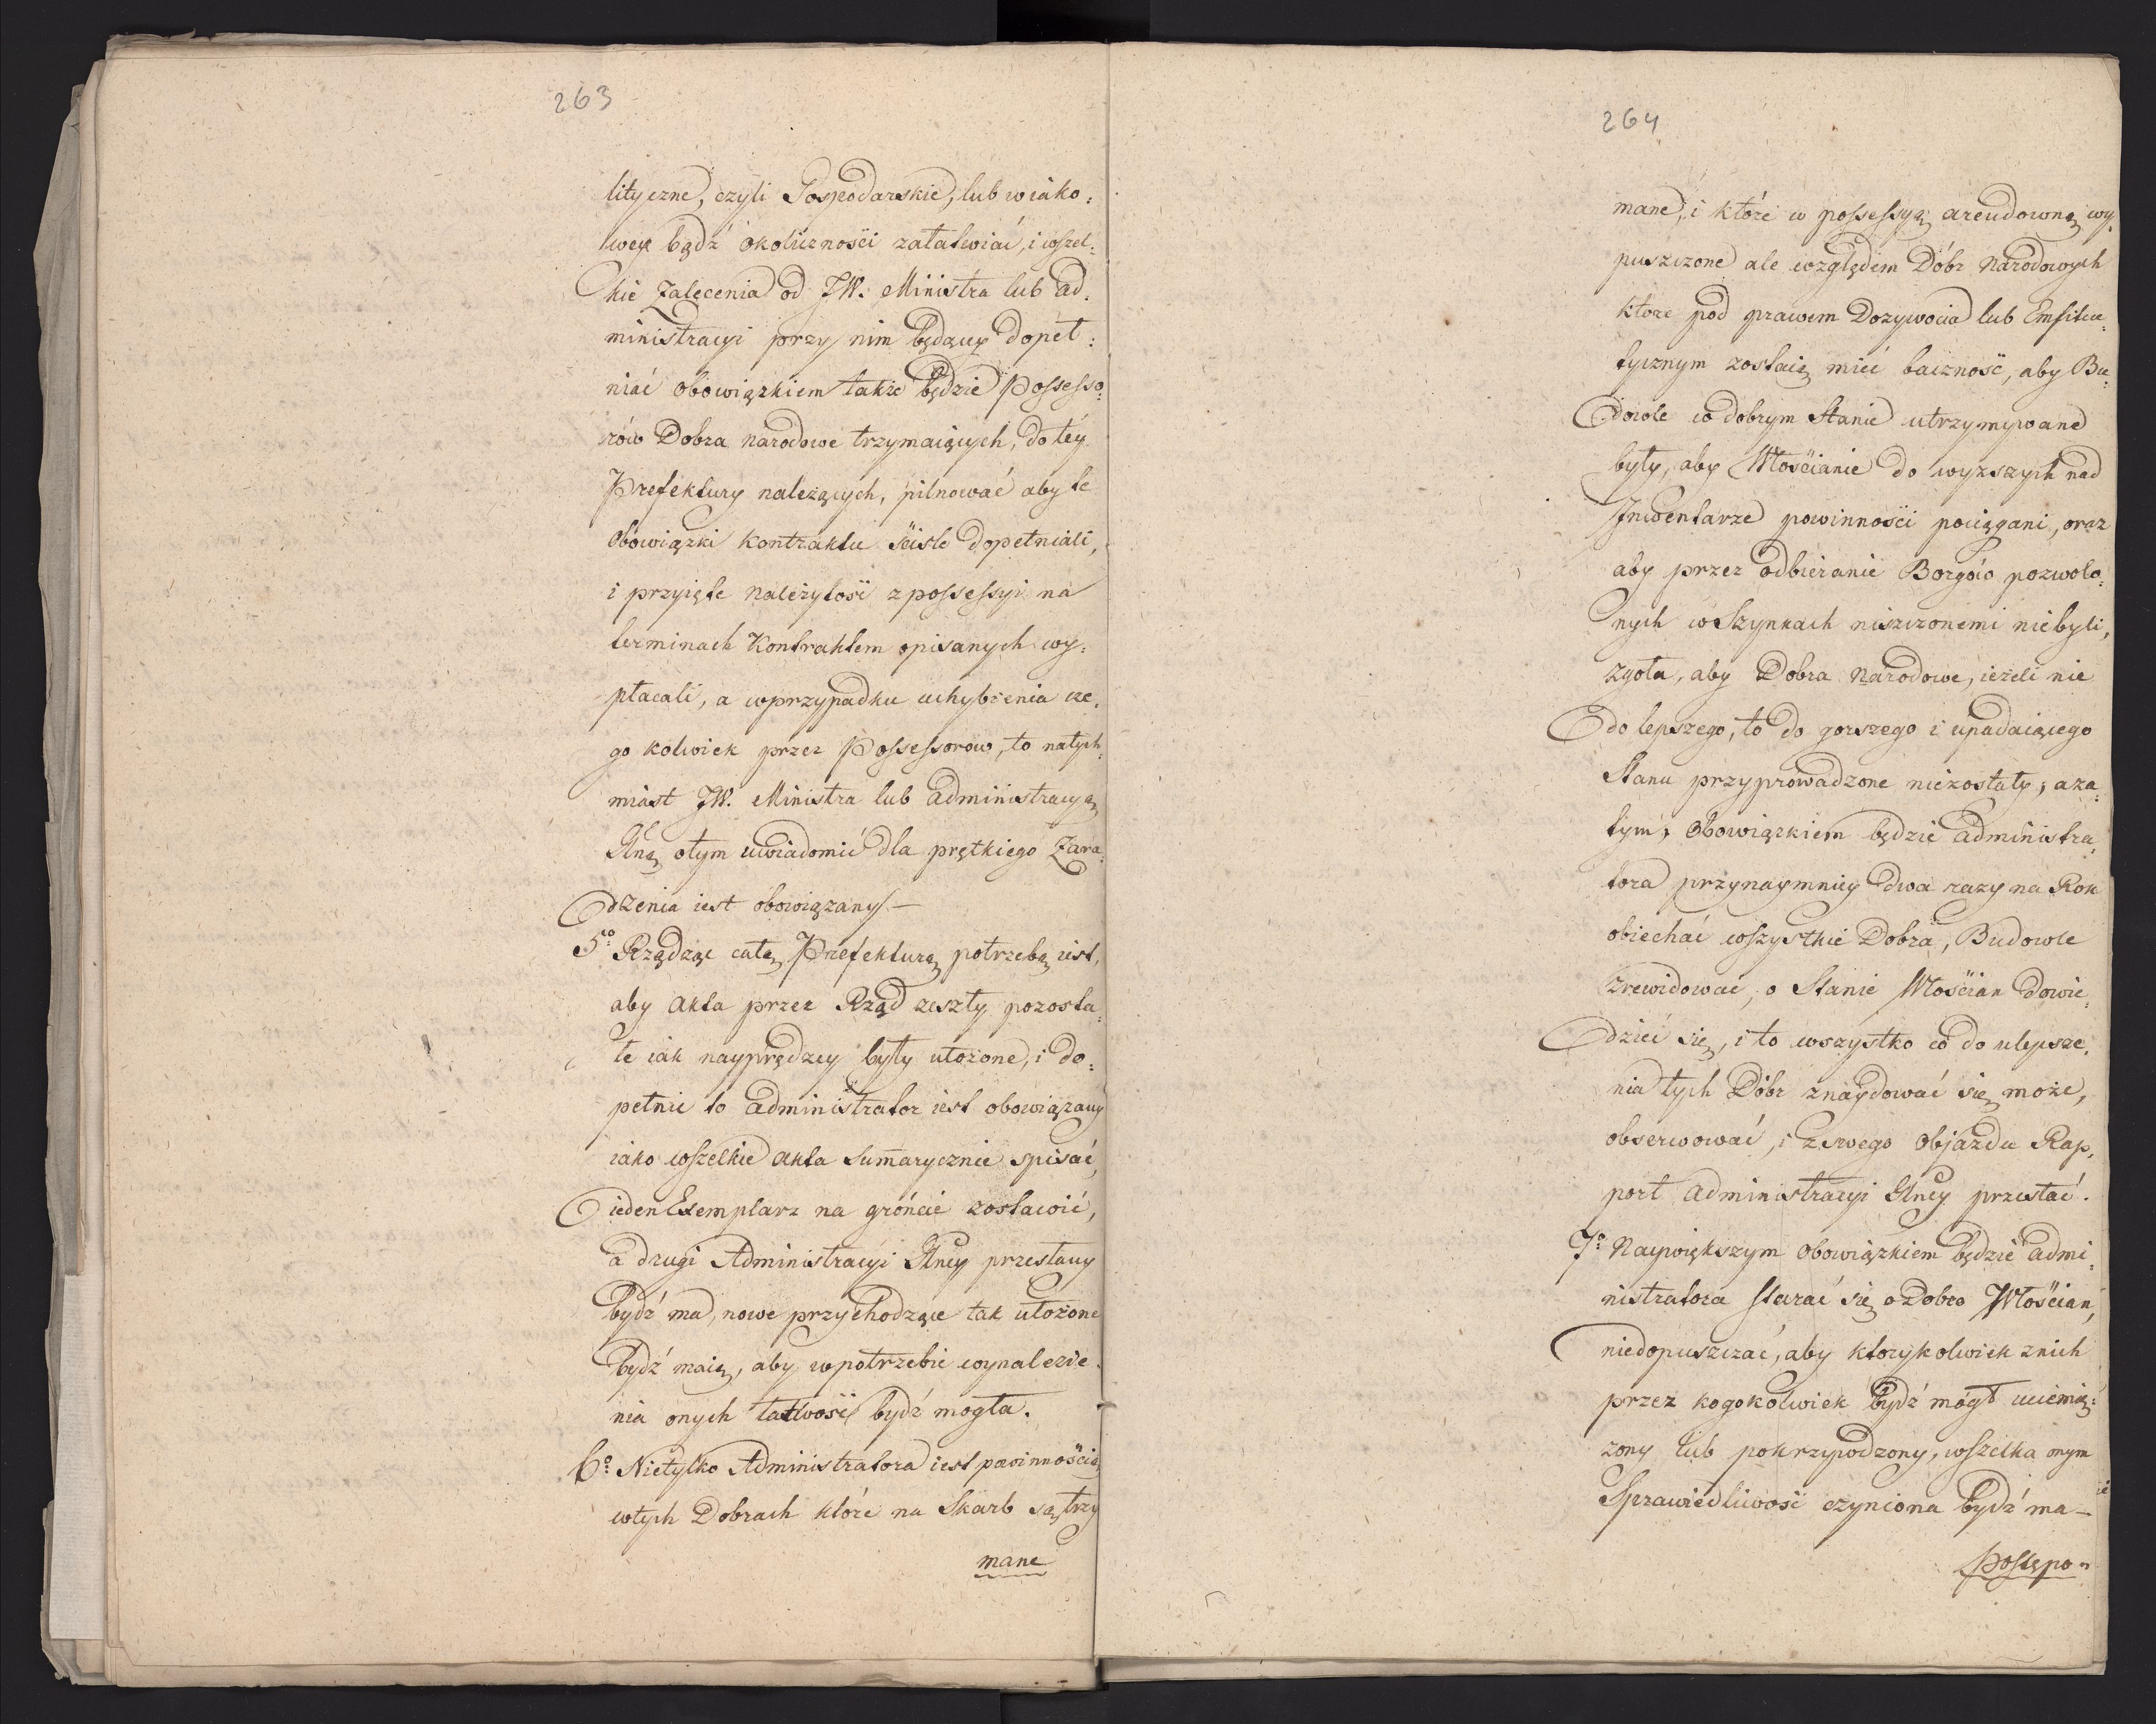 263
lityczne, czyli Gospodarskie, lub w iako:
wey bądź okoliczności załatwiać, i wszel:
kie Zalecenia od JW. Ministra lub ad:
ministracyi przy nim będącey dopeł:
niać obowiązkiem także będzie Possesso:
rów Dobra narodowe trzymaiących, do téy
Prefektury należących, pilnować aby te
Obowiązki kontraktu ściśle dopełniali,
i przyięte należytości z possessyi na
terminach Kontraktem opisanych wy:
płacali, a w przypadku uchybienia cze:
go kolwiek przez Possessorow, to natych:
miast JW. Ministra lub administracyą
Glną o tym uwiadomić dla prętkiego Zara:
dzenia iest obowiązany. —
5to Rządząc całą Prefekturą potrzebą iest,
aby akta przez Rząd zeszły pozosta:
łe iak nayprędzey były ułożone, i do:
pełnić to administrator iest obowiązany
iako wszelkie akta sum̄arycznie spisać,
ieden Exemplarz na gróncie zostawić,
a drugi Administracyi Glney przesłany
bydź ma, nowe przychodzące tak ułożone
bydź maią, aby w potrzebie wynalezie:
nia onych łatwość bydź mogła.
6o Nietylko Administratora iest powinnością
w tych Dobrach które na Skarb są trzy
mane
264
mane, i które w possessyą arendowną wy:
puszczone ale względem Dóbr Narodowych
ktore pod prawem Dozywocia lub Emfiteu:
tycznym zostaią mieć baczność, aby Bu:
dowle w dobrym Stanie utrzymywane
były, aby Włościanie do wyzszych nad
Inwentarze powinności pociągani, oraz
aby przez odbieranie Borgów pozwolo:
nych w Szynkach niszczonemi nie byli,
zgoła, aby Dobra Narodowe, ieżeli nie
do lepszego, to do gorszego i upadaiącego
Stanu przyprowadzone niezostały; a za:
tym, Obowiązkiem będzie administra:
tora przynaymniey dwa razy na Rok
obiechać wszystkie Dobra, Budowle
zrewidować, o Stanie Włościan dowie:
dzieć się, i to wszystko co do ulepsze:
nia tych Dóbr znaydować się może,
obserwować, i z swego Objazdu Rap:
port administracyi Glney przesłać.
7o Naywiększym obowiązkiem będzie admi:
nistratora starać się o Dobro Włościan,
niedopuszczać, aby którykolwiek z nich
przez kogokolwiek bydź mógł uciemię:
zony lub pokrzywdzony, wszelka onym
Sprawiedliwość czyniona bydź ma —
Postępo-